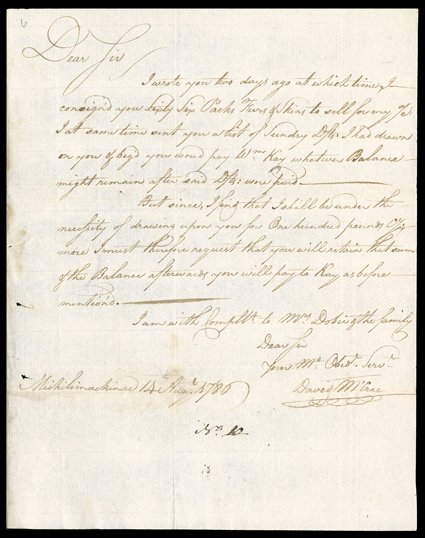 6
Dear Sir
I wrote you two days ago at which time I
consign'd you Sixty Six Packs Furs & Skins to sell for my a/c:
I at same time sent you a list of Sundry Dfts I had drawn
on you & beg'd you would pay Wm Kay whatever Balance
might remain after said Dfts were paid.
But since, I find that I shall be under the
necessity of drawing upon you for One hundred pounds Cy
more I must therefore request that you will retain that sum
of the Balance afterwards you will pay to Kay as before
mention'd.
I am with Complts. to Mrs Dobie & the family
Dear Sir
Your Mo. Obedt. Servt.
David McCrae
Michilimackinac 14 Augt. 1786
No. 10